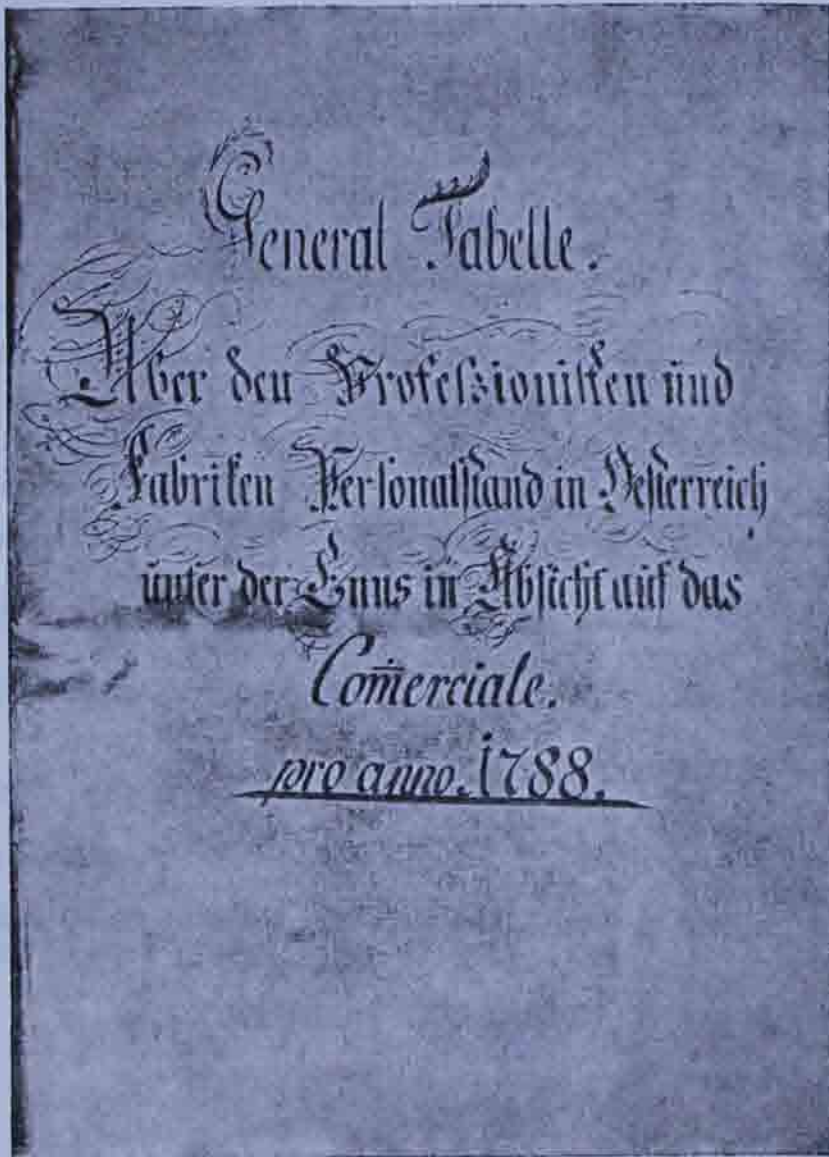 General Tabelle.
Über den Profeſsioniſten und
Fabriken Perſonalſtand in Oeſterreich
unter der Enns in Abſicht auf das
Com̄erciale.
pro anno. 1788.